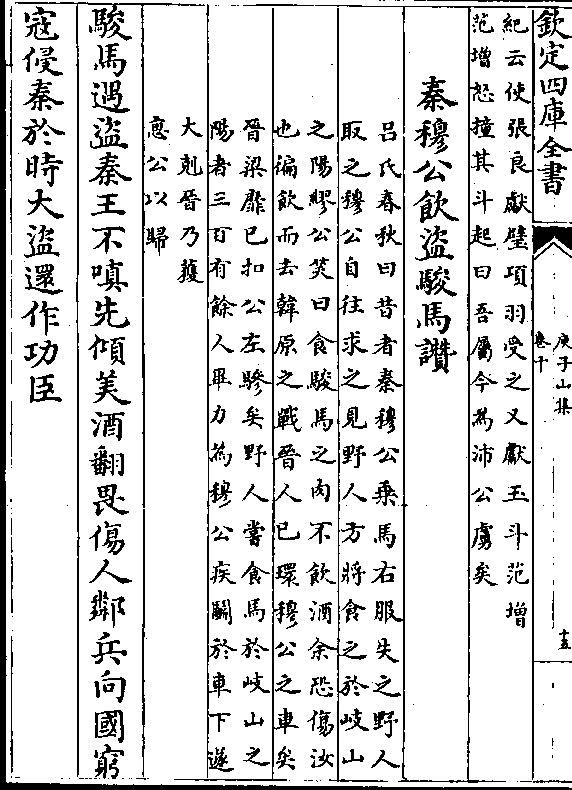 欽定四庫全書
庾子山集
卷十
十五
紀云使張良獻璧項羽受之又獻玉斗范增
范增怒撞其斗起曰吾屬今為沛公虜矣
秦穆公飲盜駿馬讚
吕氏春秋曰昔者秦穆公乗馬右服失之野人
取之穆公自往求之見野人方將食之於岐山
之陽膠公笑曰食駿馬之肉不飲酒余恐傷汝
也徧飲而去韓原之戰晉人已環穆公之車矣
晉梁靡已扣公左驂矣野人嘗食馬於岐山之
陽者三百有餘人畢力為穆公疾鬭於車下遂
大剋晉乃獲
惠公以歸
駿馬遇盜秦王不嗔先傾美酒翻畏傷人鄰兵向國窮
寇侵秦於時大盜還作功臣